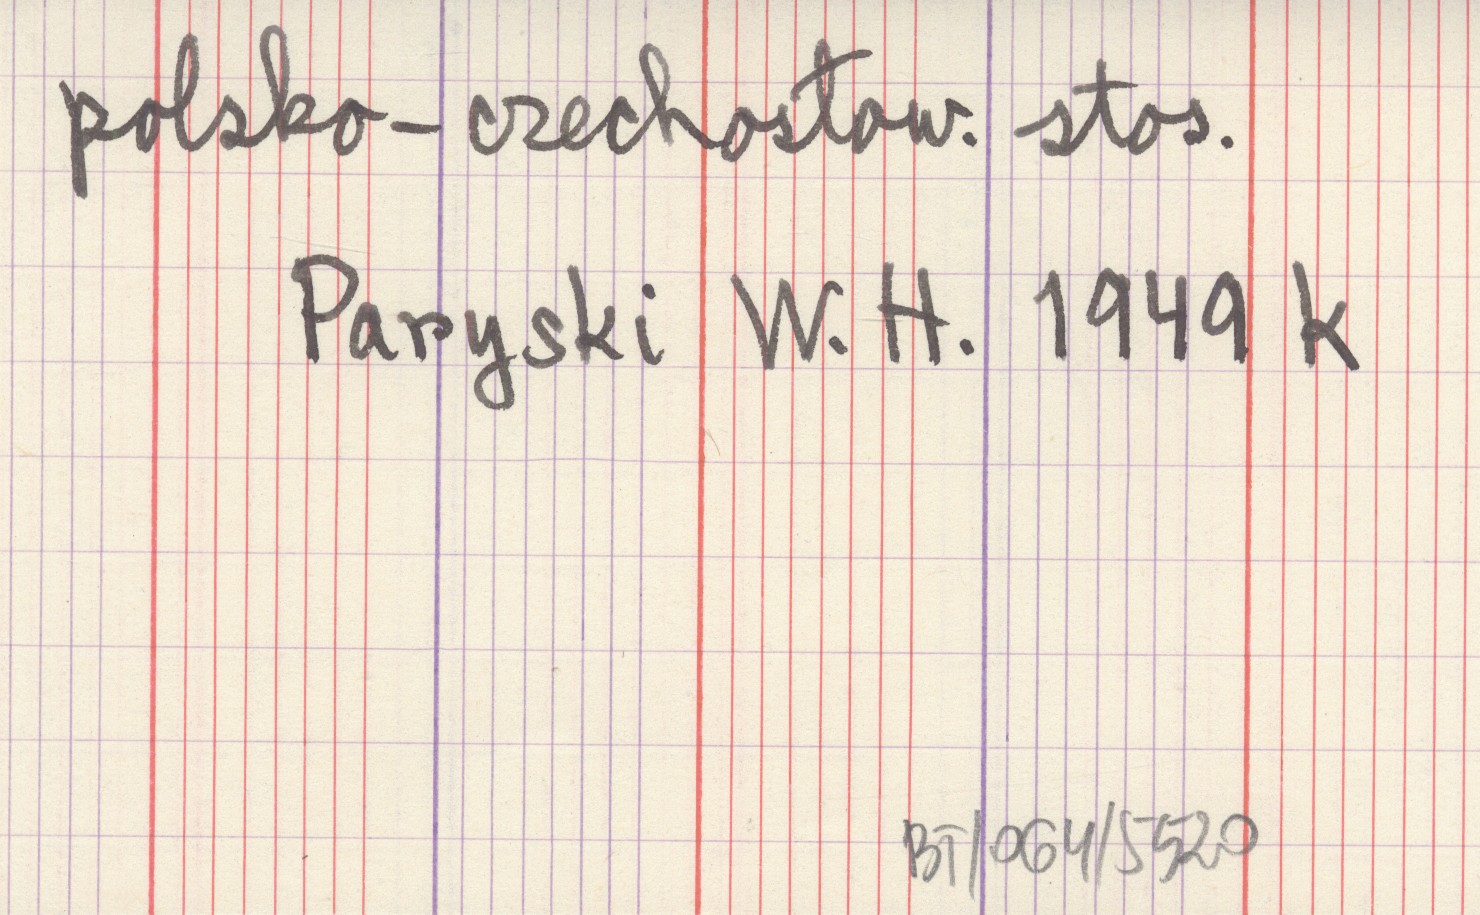 polsko-czechosłow. stos.
Paryski W. H. 1949 k
BT/064/5520